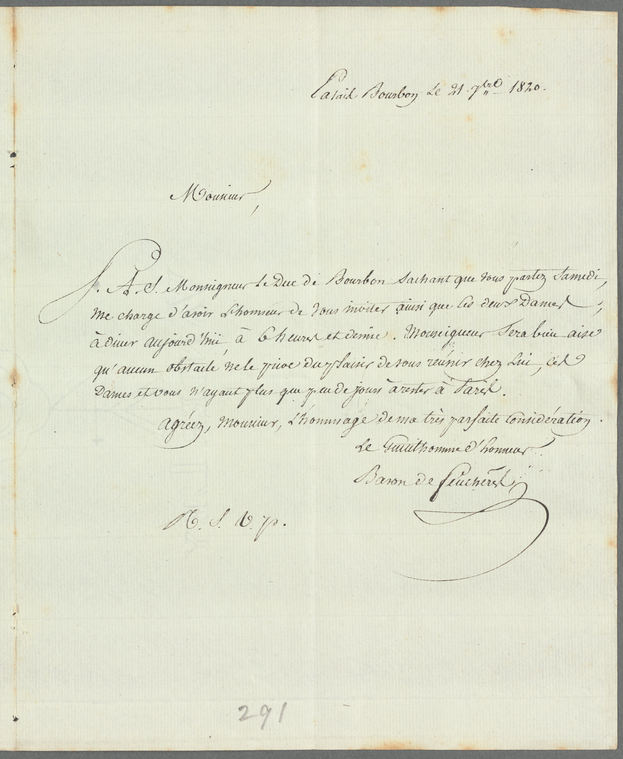 Palais Bourbon Le 21 7bre 1820.
Monsieur,
S. A. S. Monseigneur Le Duc de Bourbon sachant que vous partez samedi,
me charge d'avoir L'honneur de vous inviter ainsi que les deux Dames,
à diner aujourd'hui à 6 heures et demie. Monseigneur sera bien aise
qu'aucun obstacle ne le prive du plaisir de vous réunir chez Lui, ces
Dames et vous n'ayant plus que peu de jours à rester à Paris.
agréez, Monsieur, L'hommage de ma très parfaite considération.
Le Gentilhomme d'honneur
Baron de Feuchères
R. S. V. p.
291